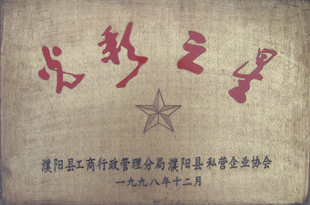 光彩之星
濮阳县工商行政管理分局濮阳县私营企业协会
一九九八年十二月